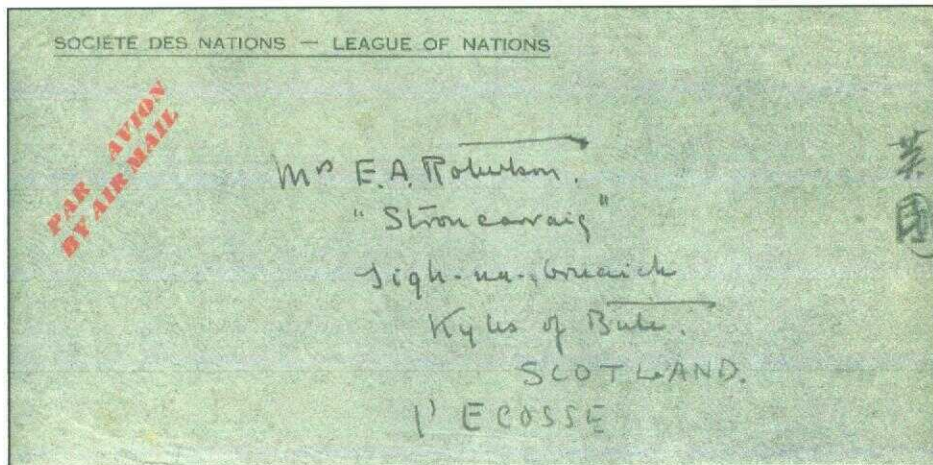 SOCIÉTÉ DES NATIONS — LEAGUE OF NATIONS
PAR AVION
BY AIR MAIL
Mrs E.A. Robertson.
"Stroncarraig"
Tigh-na-bruaich
Kyles of Bute.
SCOTLAND.
l'ECOSSE
英国